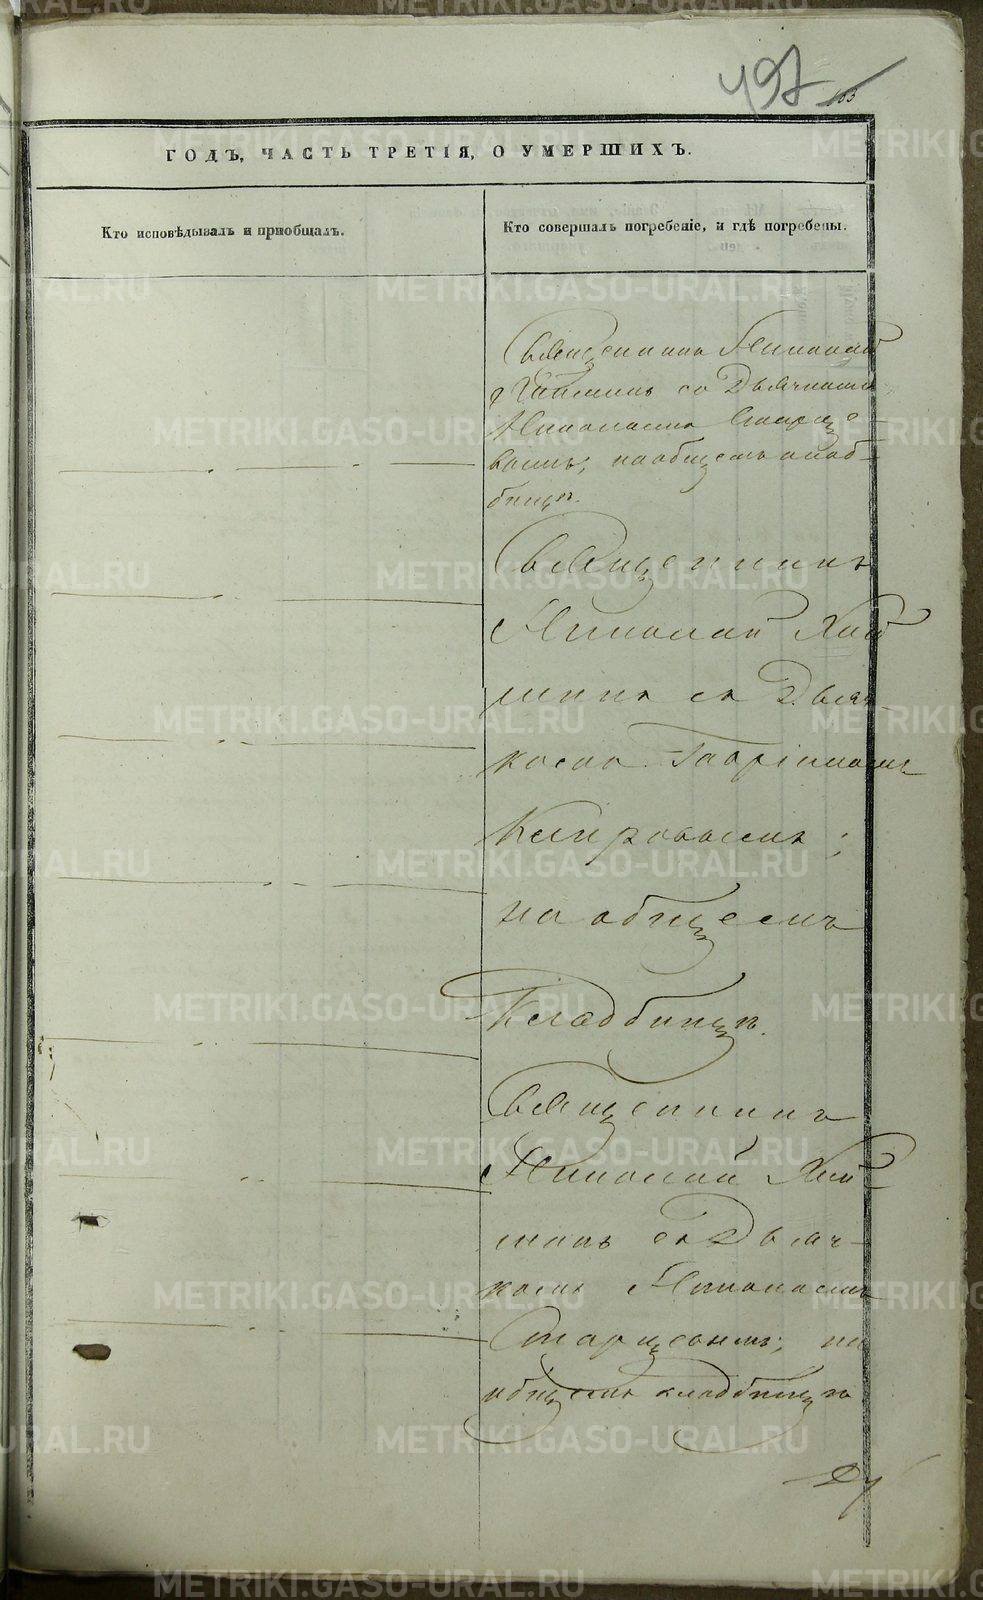 497
ГОДЪ, ЧАСТЬ ТРЕТІЯ, О УМЕРШИХЪ.
Кто исповѣдывалъ и приобщалъ.
Кто совершалъ погребеніе, и гдѣ погребены.
Священникъ Николай
со Дьячкомъ
Николаемъ Старце
вымъ; на общемъ клад-
бищѣ.
Священникъ
Николай Хай
минъ съ Дьяч-
комъ Гавріиломъ
на общемъ
Кладбищѣ.
Священникъ
Николай Хай
минъ съ Дьяч-
комъ Николаемъ
Старцевымъ; на
общемъ кладбищѣ
METRIKI.GASO-URAL.RU